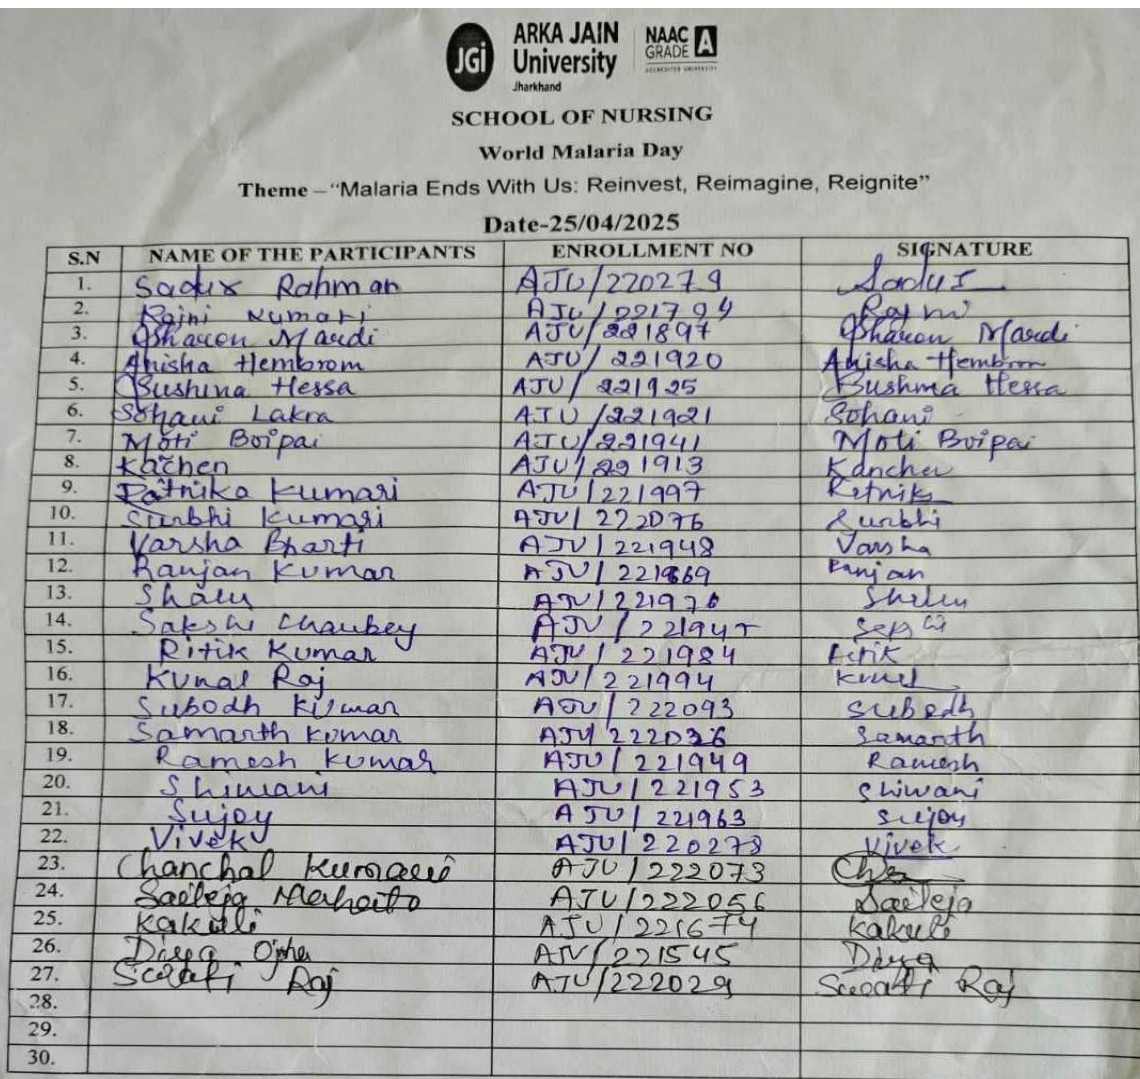 JGi ARKA JAIN University Jharkhand NAAC GRADE A
ACCREDITED UNIVERSITY
SCHOOL OF NURSING
World Malaria Day
Theme – “Malaria Ends With Us: Reinvest, Reimagine, Reignite”
Date-25/04/2025
S.N NAME OF THE PARTICIPANTS ENROLLMENT NO SIGNATURE
1. Sadur Rahman AJU/220279 Sadur
2. Rajni Kumari AJU/221794 Rajni
3. Sharon Mardi AJU/221897 Sharon Mardi
4. Anisha Hembrom AJU/221920 Anisha Hembrom
5. Sushma Hessa AJU/221925 Sushma Hessa
6. Sohani Lakra AJU/221921 Sohani
7. Moti Boipai AJU/221941 Moti Boipai
8. Kachen AJU/221913 Kanchen
9. Ratnika Kumari AJU/221997
10. Surbhi Kumari AJU/222076 Surbhi
11. Varsha Bharti AJU/221948 Varsha
12. Ranjan Kumar AJU/221969 Ranjan
13. Shalu AJU/221976
14. Sakshi Chaubey AJU/221947
15. Ritik Kumar AJU/221984 Ritik
16. Kunal Raj AJU/221994 Kunal
17. Subodh Kumar AJU/222093 Subodh
18. Samarth Kumar AJU/222036 Samarth
19. Ramesh Kumar AJU/221949 Ramesh
20. Shiwani AJU/221953 Shiwani
21. Sujoy AJU/221963 Sujoy
22. Vivek AJU/220278 Vivek
23. Chanchal Kumari AJU/222073
24. Saileja Mahato AJU/222056 Saileja
25. Kakuli AJU/221674 Kakuli
26. Divya Ojha AJU/221545 Divya
27. Swati Raj AJU/222029 Swati Raj
28.
29.
30.